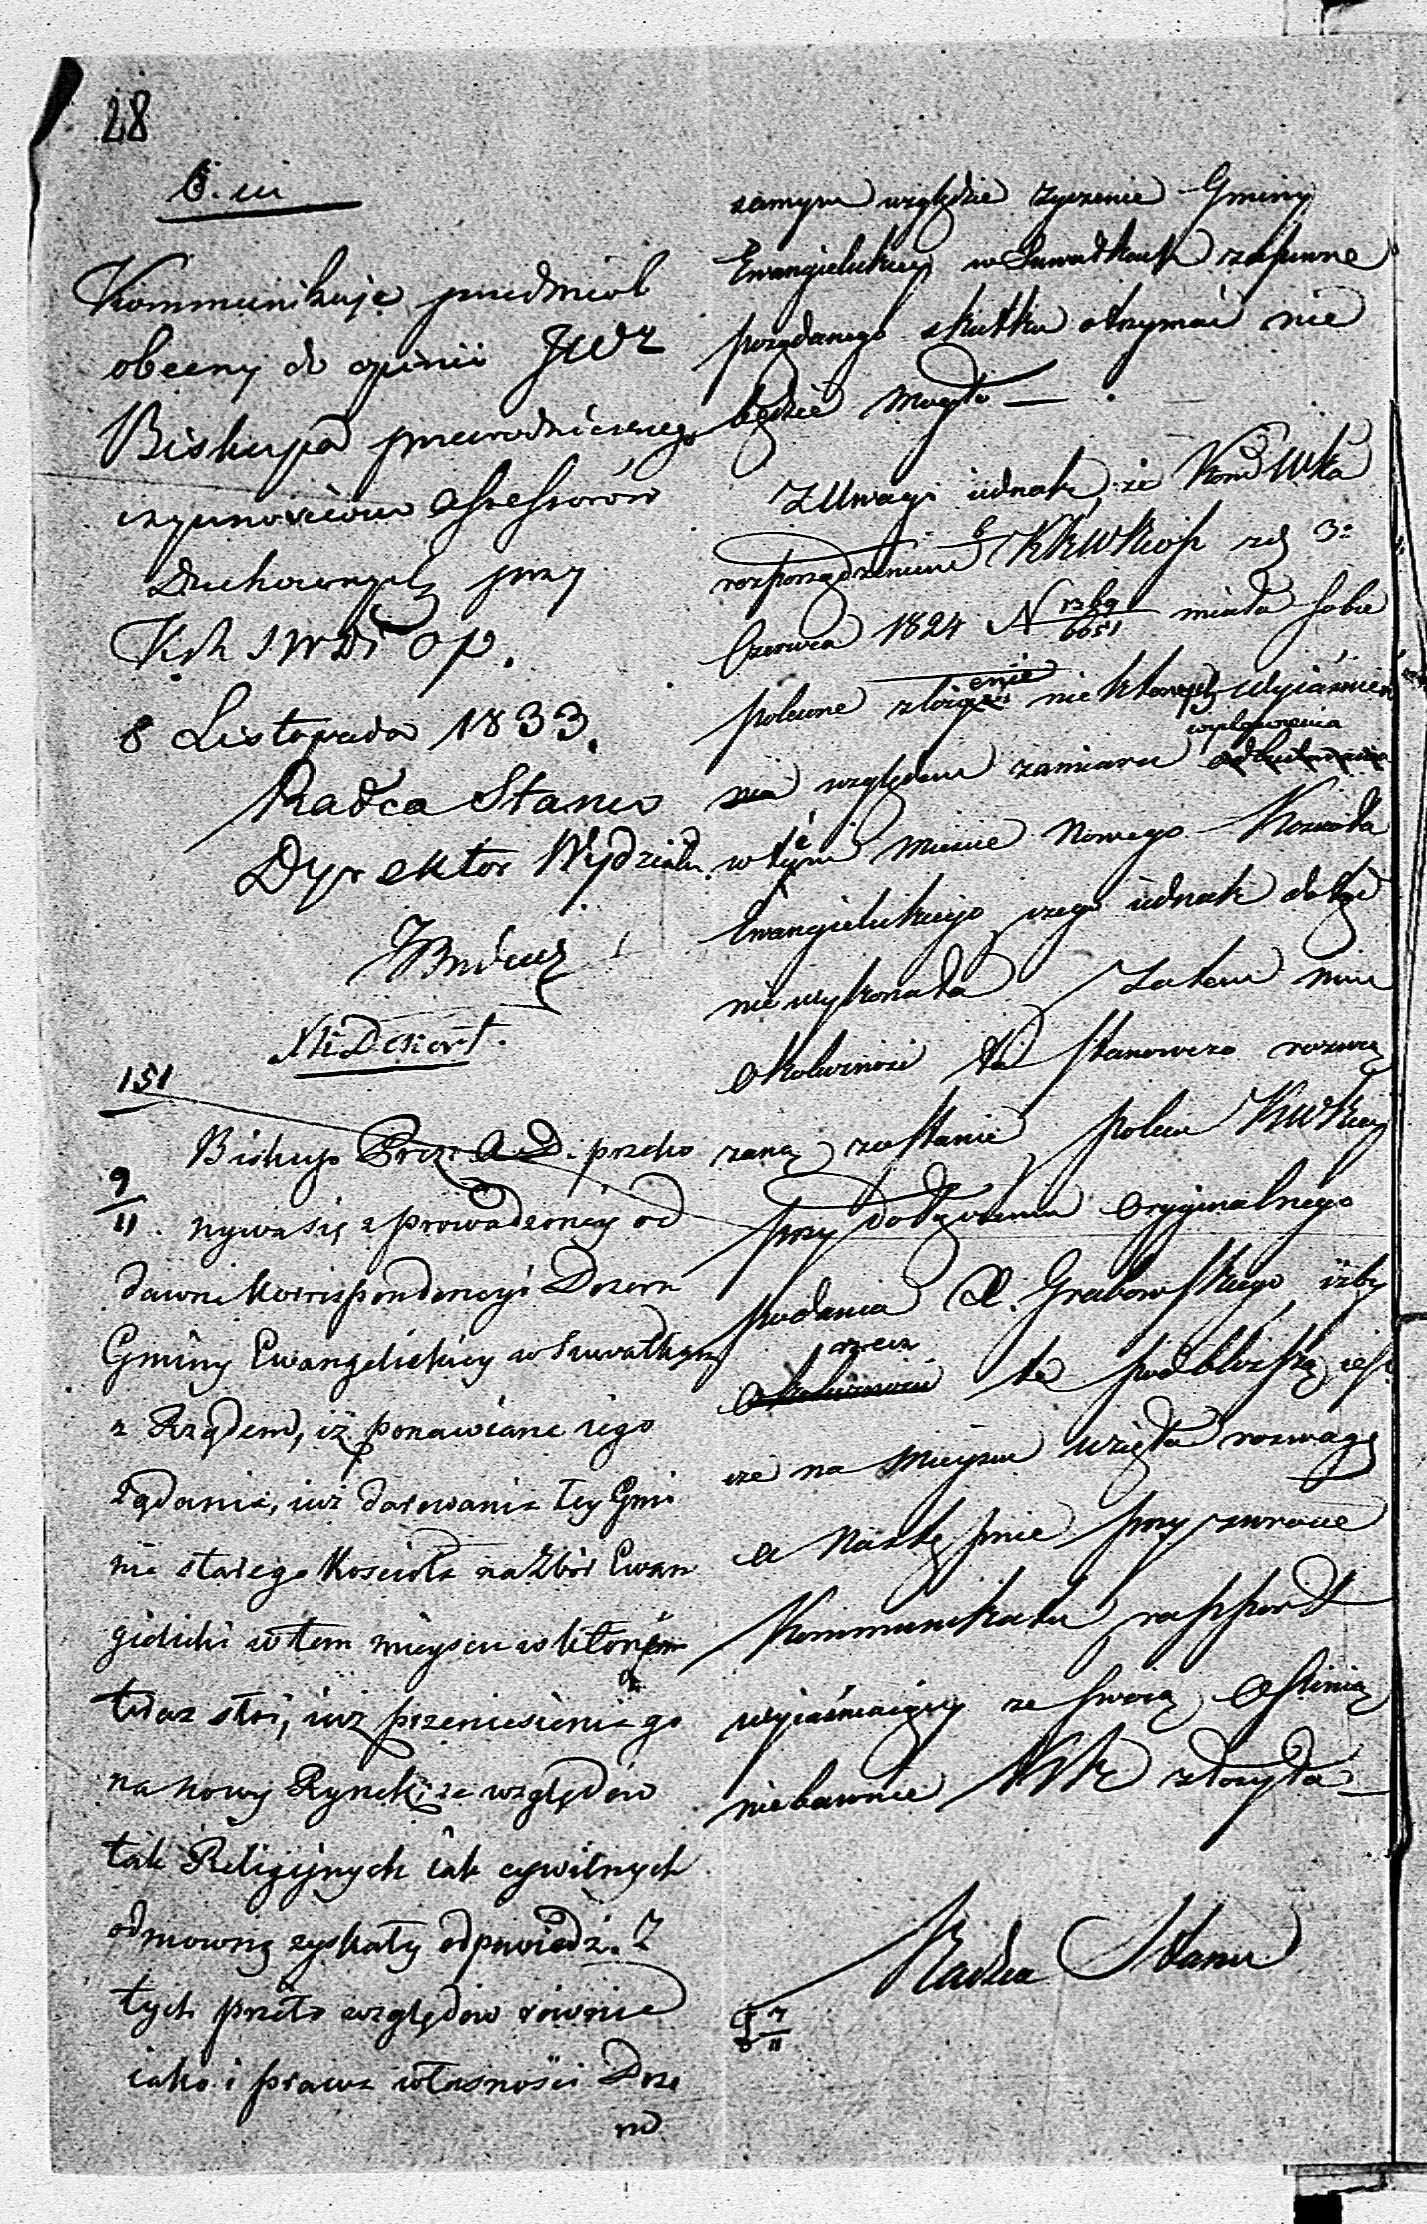 28
Kommunikuje przedmiot
obecny do opinii JWo
Biskupa przewodniczącego
i czynościów Assessorów
Duchownych przy
8 Listopada 1833.
Radca Stanu
Dyrektor Wydziału
151
Biskup Prez: A. D. przeko
9/11. nywa się z prowadzonéy od
dawna korrispondencyi Dozoru
Gminy Ewangelickiey w Suwałkach
z Rządem, iż ponawiane iego
żądania, iuż darowania tey Gmi
nie starego Kościoła na Zbór Ewan
gielicki w tem mieyscu w którém
teraz stoi, iuż przeniesienia go
na nowy Rynek, ze względów
tak Religiynych iak cywilnych
odmowną zyskały odpowiedź. Z
tych przeto względów równie
iako i prawa własności Doze
samym względzie życzenie Gminy
Ewangielickiey w Suwałkach zapewne
pożądanego skutku otrzymać nie
będzie mogło —
Z uwagi iednak, że Kom̃ Wka
rozporządzeniem z d 3o
Czerwca 1824 N miała sobie
polecone złożenie niektórych wyiaśnień
względem zamiaru wystawienia
w tém mieście Nowego Kościoła
Ewangielickiego, czego iednak dotąd
nie wykonała Zatem nim
okoliczność ta stanowczo rozwią
zaną zostanie, poleca KWkiey
przy dołączeniu Oryginalnego
podania X. Grabowskiego, iżby
rzecz tę pod bliższą ies:
cze na mieyscu wzięła rozwagę
a następnie przy zwrocie
Kommunikatu rapport
wyiaśniaiący ze swoią Opinią
niebawnie złożyła —
Radca Stanu
7/11